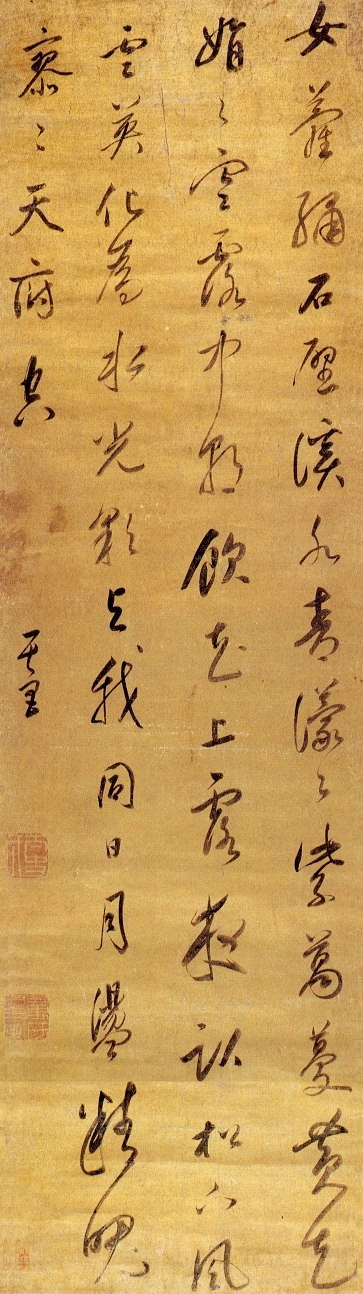 女蘿繡石壁溪水青濛〻紫葛蔓黃花
娟〻寒露中朝飲花上露夜臥松下風
雲英化為水光彩與我同日月盪精魄
寥〻天府空
其昌